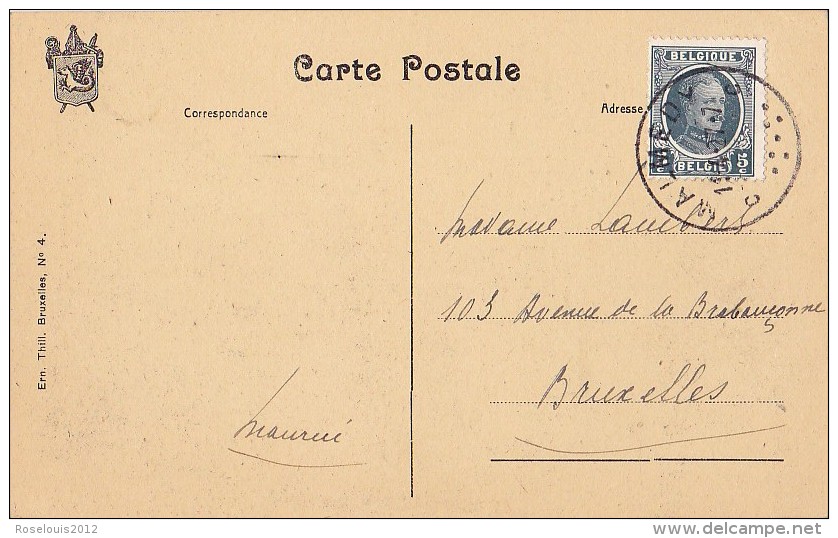 Carte Postale
Correspondance
Adresse
BELGIQUE
5
BELGIE
MALMEDY
Madame Lambert
103 Avenue de la Brabançonne
Bruxelles
Maurice
Ern. Thill. Bruxelles, No 4.
Roselouis2012
delcampe.net